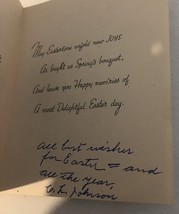 May Eastertime unfold new JOYS
As bright as Spring's bouquet,
And leave you Happy memories of
A most Delightful Easter day.
all best wishes
for Easter - and
all the year,
Johnson